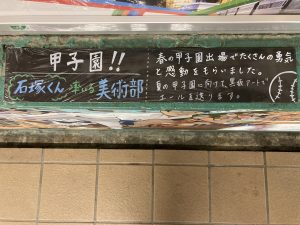 甲子園!!
石塚くん率いる美術部
春の甲子園出場でたくさんの勇気
と感動をもらいました。
夏の甲子園に向けて黒板アートで
エールを送ります。